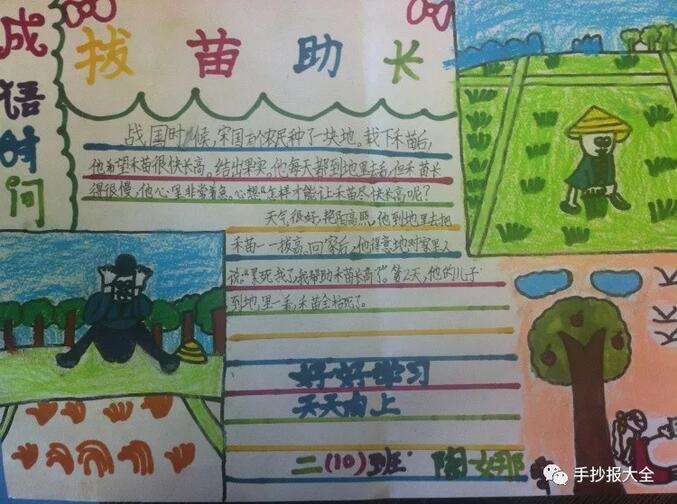 成语时间
拔苗助长
战国时候,宋国有个农民种了一块地。栽下禾苗后,
他希望禾苗很快长高。结出果实。他每天都到地里去看,但禾苗长
得很慢,他心里非常着急。心想“怎样才能让禾苗尽快长高呢?
天气很好,艳阳高照,他到地里去把
禾苗一一拔高,回家后,他得意地对家里人
说:“累死我了,我帮助禾苗长高了”。第2天,他的儿子
到地里一看,禾苗全枯死了。
好好学习
天天向上
二(10)班 陶娜
手抄报大全